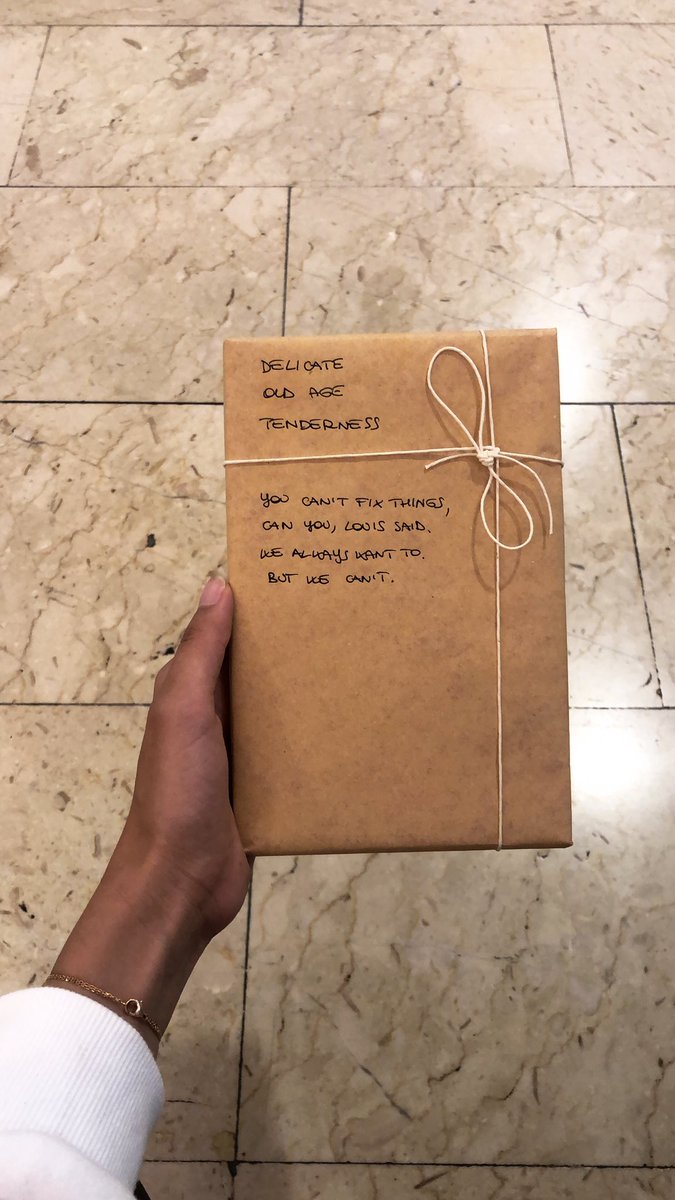 DELICATE
OLD AGE
TENDERNESS
YOU CAN'T FIX THINGS,
CAN YOU, LOUIS SAID.
WE ALWAYS WANT TO.
BUT WE CAN'T.